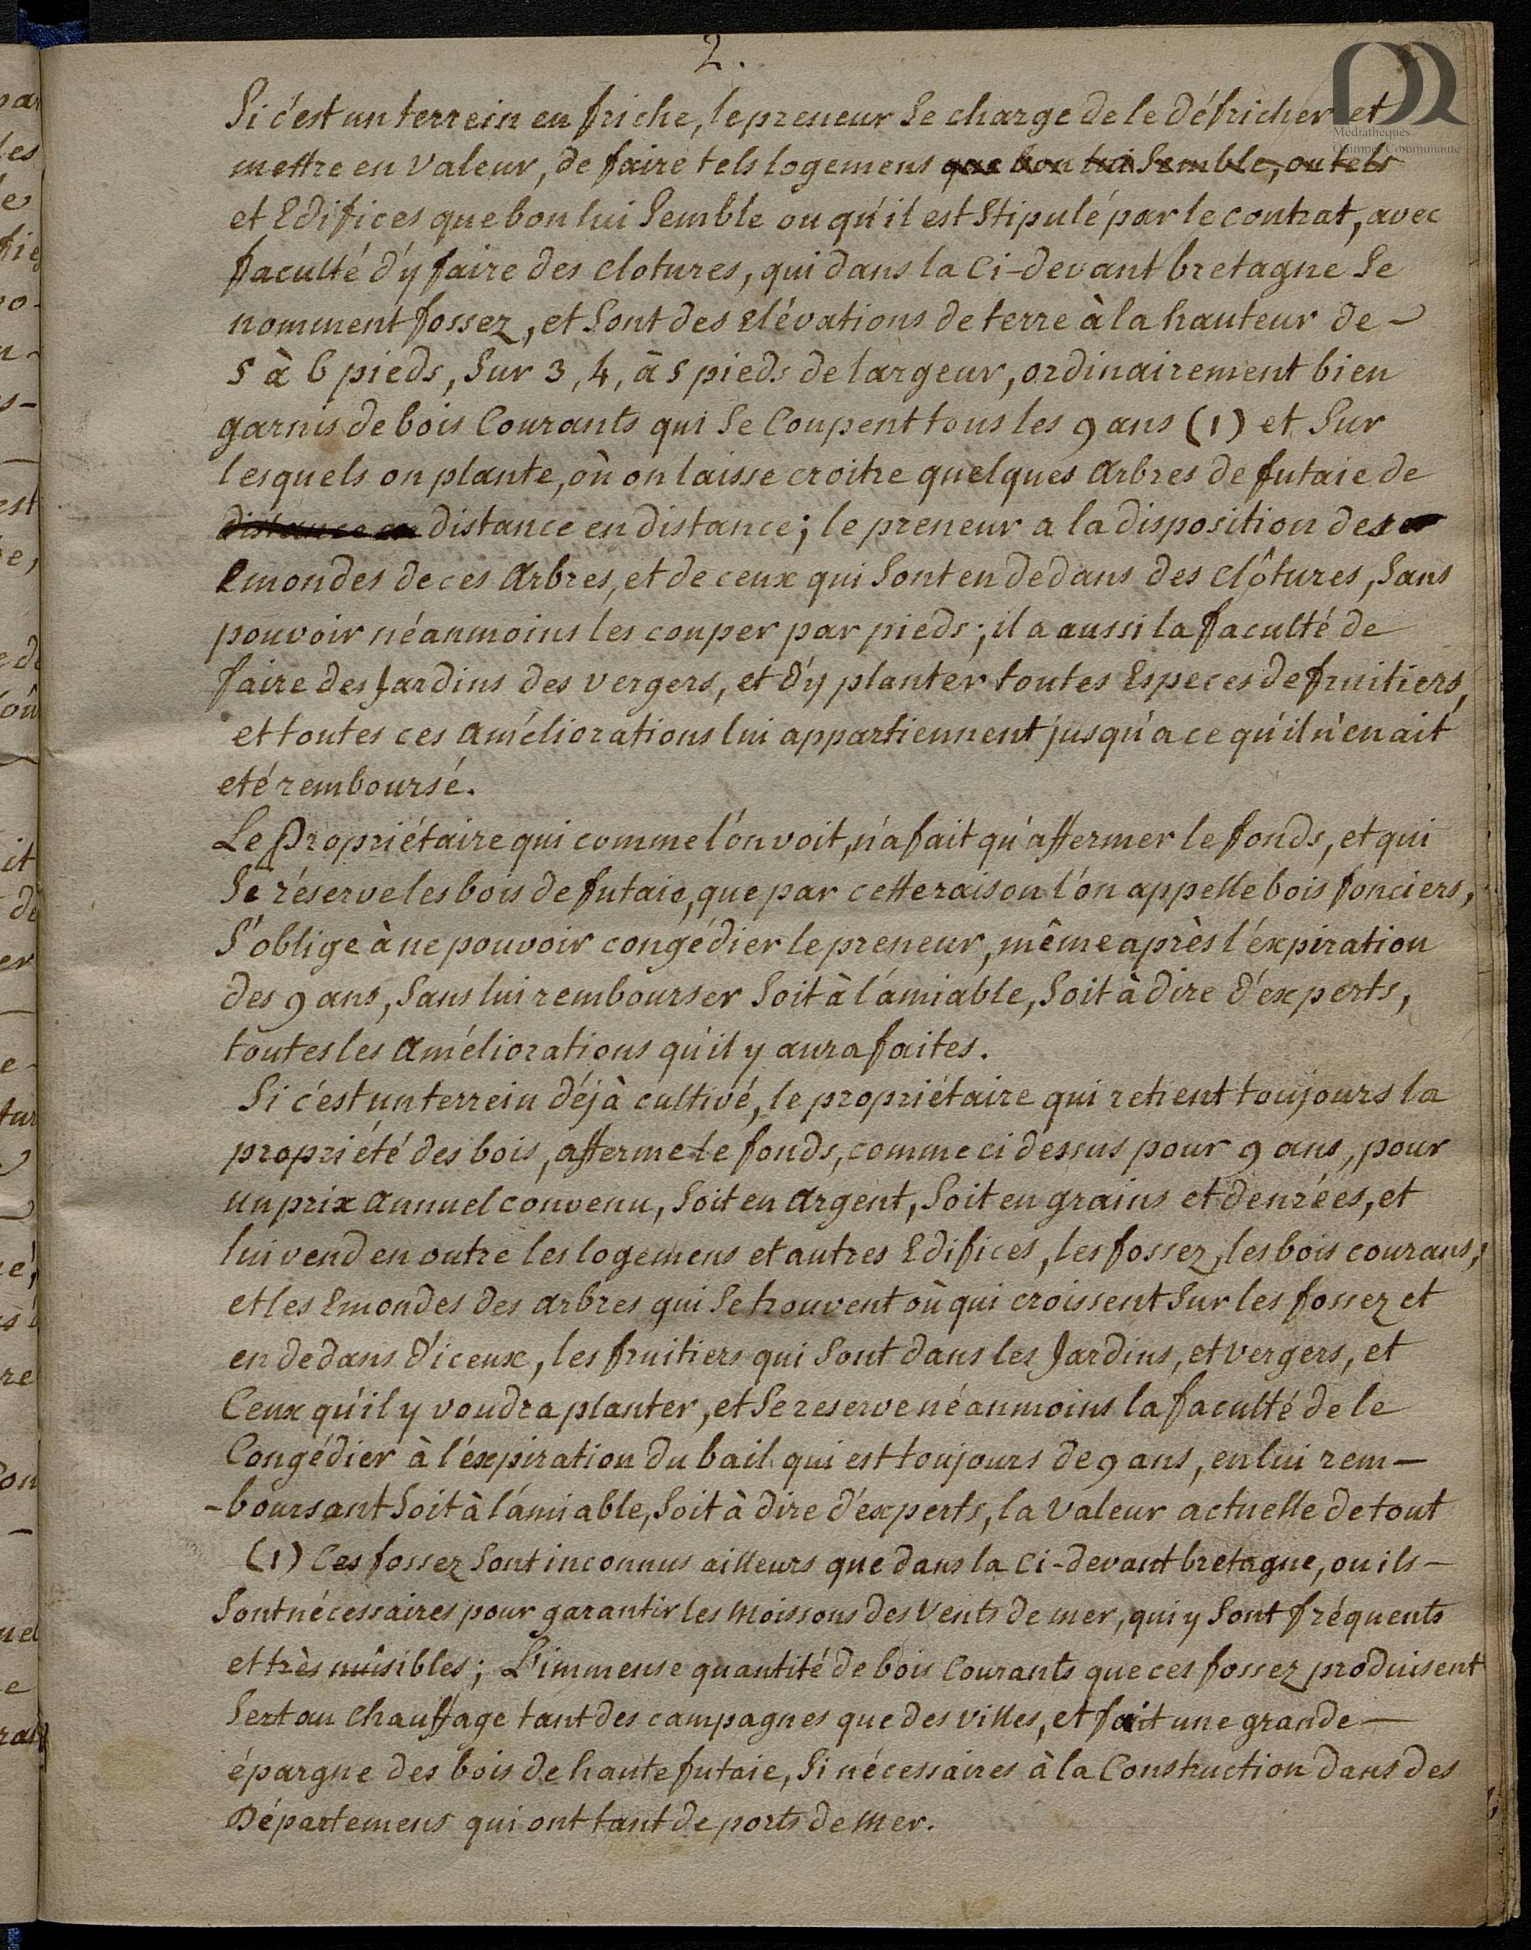 2.
Si c'est un terrein en friche, le preneur se charge de le défricher et
mettre en valeur, de faire tels logemens que bon lui semble, ou tels
et Edifices que bon lui semble ou qu'il est stipulé par le contrat, avec
faculté d'y faire des clotures, qui dans la Ci-devant bretagne se
nomment fossez, et sont des élévations de terre à la hauteur de
5 à 6 pieds, sur 3, 4, à 5 pieds de largeur, ordinairement bien
garnis de bois Courants qui se Coupent tous les 9 ans (1) et sur
lesquels on plante, où on laisse croitre quelques Arbres de futaie de
distance en distance en distance; le preneur a la disposition des
Emondes de ces Arbres, et de ceux qui sont en dedans des clôtures, sans
pouvoir néanmoins les couper par pieds; il a aussi la faculté de
faire des Jardins des vergers, et d'y planter toutes Especes de fruitiers,
et toutes ces améliorations lui appartiennent jusqu'a ce qu'il n'en ait
eté remboursé.
Le Propriétaire qui comme l'on voit, n'a fait qu'affermer le fonds, et qui
se réserve les bois de futaie, que par cette raison l'on appelle bois fonciers,
s'oblige à ne pouvoir congédier le preneur, même après l'éxpiration
des 9 ans, sans lui rembourser soit à l'amiable, soit à dire d'experts,
toutes les améliorations qu'il y aura faites.
Si c'est un terrein déjà cultivé, le propriétaire qui retient toujours la
propriété des bois, afferme le fonds, comme ci dessus pour 9 ans, pour
un prix annuel convenu, soit en Argent, soit en grains et denrées, et
lui vend en outre les logemens et autres Edifices, les fossez, les bois courans,
et les Emondes des arbres qui se trouvent où qui croissent sur les fossez et
en dedans d'iceux, les fruitiers qui sont dans les Jardins, et vergers, et
Ceux qu'il y voudra planter, et se reserve néanmoins la faculté de le
Congédier à l'éxpiration du bail qui est toujours de 9 ans, en lui rem-
-boursant soit à l'amiable, soit à dire d'experts, la valeur actuelle de tout
(1) Ces fossez sont inconnus ailleurs que dans la Ci-devant bretagne, ou ils
sont nécessaires pour garantir les moissons des vents de mer, qui y sont fréquents
et très nuisibles; L'immense quantité de bois Courants que ces fossez produisent
sert au chauffage tant des campagnes que des villes, et fait une grande
épargne des bois de haute futaie, si nécessaires à la Construction dans des
Départemens qui ont tant de ports de mer.
Médiathèques
Quimper Communauté